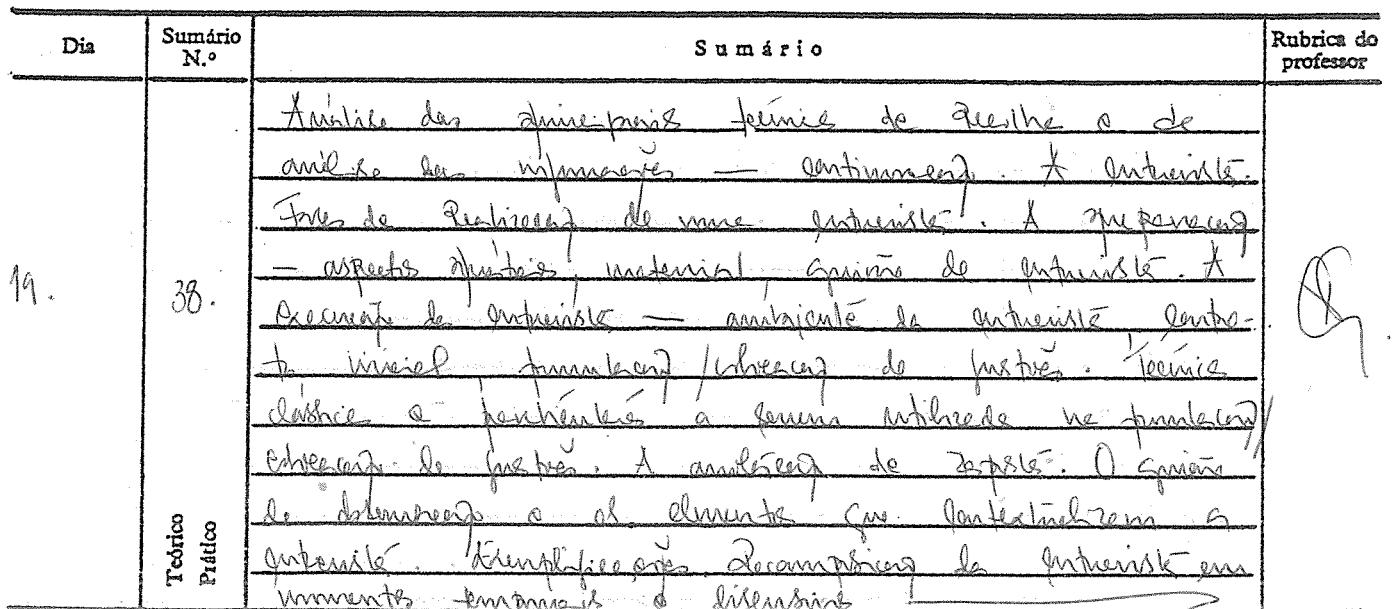 Dia
Sumário N.º
Sumário
Rubrica do professor
19.
38.
Teórico
Prático
Análise das principais técnicas de recolha e de
análise das informações — continuação. A entrevista.
Fases de realização de uma entrevista. A preparação
— aspectos materiais, guião de entrevista. A
execução da entrevista — ambiente da entrevista, contac-
to inicial, formulação/colocação de questões. Técnicas
clássicas e a serem utilizadas na formulação/
colocação de questões. A anotação de respostas. O guião
de observação e os elementos que contextualizam a
entrevista. Exemplificações. Decomposição da entrevista em
momentos temporais e dimensões